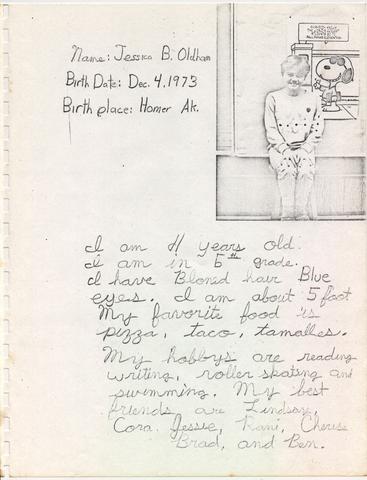 Name: Jessica B. Oldham
Birth Date: Dec. 4, 1973
Birth place: Homer Ak.
I am 11 years old.
I am in 5th grade.
I have Blond hair Blue
eyes. I am about 5 foot
My favorite food is
pizza, taco, tamalles.
My hobbys are reading
writing, roller skating and
swimming. My best
friends are Lindsay,
Cora, Jessie, Rani, Cherise
Brad, and Ben.